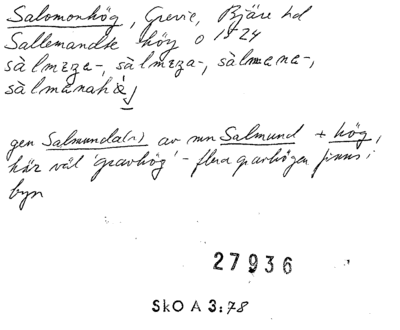 Salomonhög, Grevie, Bjäre hd
Sallemandse höy o 1524
sàlmeza-, sàlmeza-, sàlmana-,
sàlmanahö́j
gen Salmunda(r) av mn Salmund + hög,
här väl 'gravhög' - flera gravhögar finns i
byn
27936
SkO A 3:78